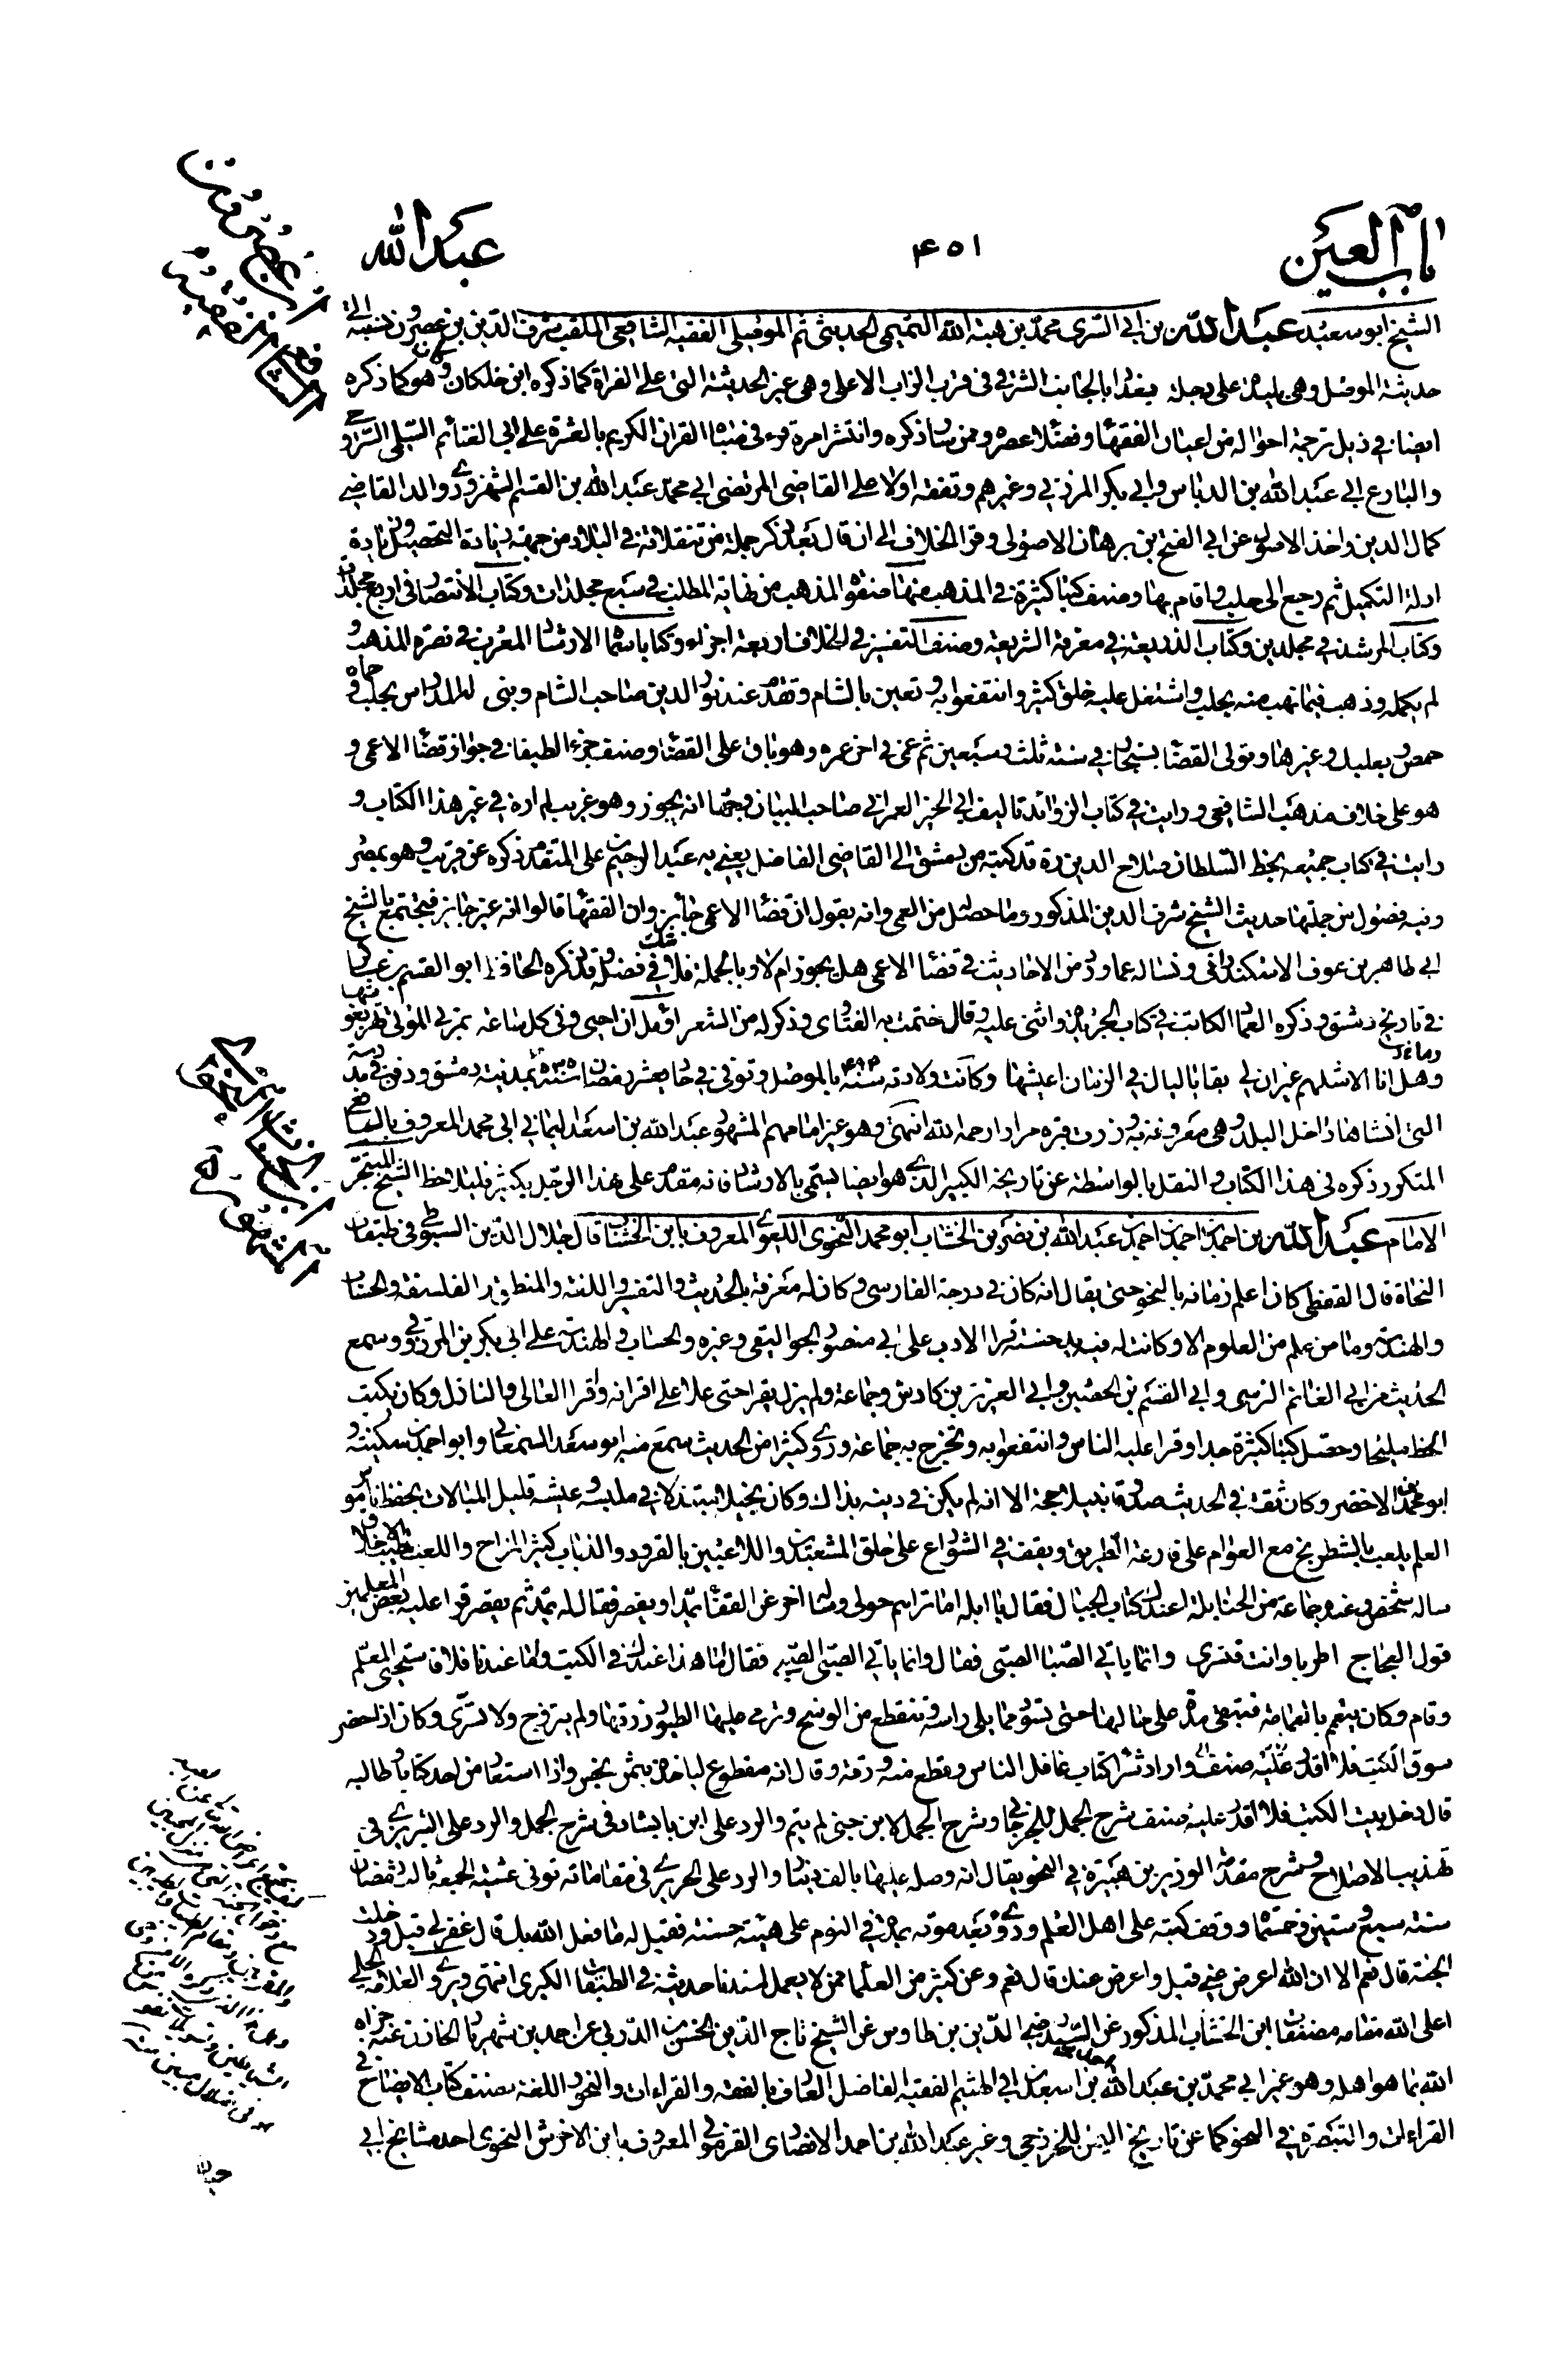 باب العين
٤٥١
عبد الله
الشيخ ابو سعيد عبد الله بن ابي السرى محمد بن هبة الله التميمى الحديثى ثم الموصلى الفقيه الشافعى الملقب شرف الدين بن عصرون نسبة الى
حديثة الموصل وهى بليدة على دجلة بالجانب الشرقى فى قرب الزاب الاعلى وهى غير الحديثة التى على الفراة كما ذكره ابن خلكان وهو كما ذكره
ايضا فى ذيل ترجمة احواله من اعيان الفقهاء وفضلاء عصره وممن سار ذكره وانتشر امره قرء فى صباه القران الكريم بالعشرة على ابى الغنائم السلمى السروجى
والبارع ابى عبد الله بن الدباس وابى بكر المزرفى وغيرهم وتفقه اولا على القاضى المرتضى ابى محمد عبد الله بن القسم الشهرزورى والد القاضى
كمال الدين واخذ الاصول عن ابى الفتح ابن برهان الاصولى وقرء الخلاف الى ان قال بعد ذكر جملة من تنقلاته فى البلاد من جهة زيادة التحصيل وزيادة
ادلة التكميل ثم رجع الى حلب واقام بها وصنف كتبا كثيرة فى المذهب منها صفوة المذهب من نهاية المطلب فى سبع مجلدات وكتاب الانتصار فى اربع مجلدات
وكتاب المرشد فى مجلدين وكتاب الذريعة فى معرفة الشريعة وصنف التفسير فى الخلاف اربعة اجزاء وكتابا سماه الارشاد المغرب فى نصرة المذهب و
لم يكمله وذهب فيما نهب منه بحلب واشتغل عليه خلق كثير وانتفعوا به وتعين بالشام وتقدم عند نور الدين صاحب الشام وبنى له المدارس بحلب وحماه و
حمص وبعلبك وغيرها وتولى القضاء بسنجار فى سنة ثلث وسبعين ثم عمى فى اخر عمره وهو باق على القضاء وصنف جزء الطيفا فى جواز قضاء الاعمى و
هو على خلاف مذهب الشافعى ورايت فى كتاب الزوائد تاليف ابى الخير العمرانى صاحب البيان وجها انه يجوز وهو غريب لم اره فى غير هذا الكتاب و
رايت فى كتاب جميعه بخط السلطان صلاح الدين ره قد كتبه من دمشق الى القاضى الفاضل يعنى به عبد الرحيم بن على المتقدم ذكره عن قريب وهو بمصر
وفيه فصول من جملتها حديث الشيخ شرف الدين المذكور وما حصل له من العمى وانه يقول ان قضاء الاعمى جائز وان الفقهاء قالوا انه غير جائز فيجتمع بالشيخ
ابى طاهر بن عوف الاسكندرانى وتساله عما ورد من الاحاديث فى قضاء الاعمى هل يجوز ام لا وبالجملة فلا شك فى فضله قد ذكره الحافظ ابو القسم بن عساكر
فى تاريخ دمشق وذكره العماد الكاتب فى كتاب الخريدة واثنى عليه وقال ختمت به الفتاوى وذكر له من الشعر اؤمل ان احيى وفى كل ساعة تمر بى الموتى تهز نعوشها
وهل انا الا مثلهم غير ان لى بقايا ليال فى الزمان اعيشها وكانت ولادته سنة ٤٩٢ بالموصل وتوفى فى حادى عشر رمضان سنة ٥٨٥ بمدينة دمشق ودفن فى مدرسته
التى انشاها داخل البلد وهى معروفة به وزرت قبره مرارا رحمه الله انتهى وهو غير امامهم المشهور عبد الله بن اسعد اليمانى ابى محمد المعروف باليافعى
المتكرر ذكره فى هذا الكتاب والنقل بالواسطة عن تاريخه الكبير الذى هو ايضا يسمى بالارشاد فانه مقدم على هذا الرجل بكثير فليلاحظ الشيخ المتبحر
الامام عبد الله بن احمد بن احمد بن احمد بن عبد الله بن نصر بن الخشاب ابو محمد النحوى اللغوى المعروف بابن الخشاب قال جلال الدين السيوطى فى طبقات
النحاة قال القفطى كان اعلم زمانه بالنحو حتى يقال انه كان فى درجة الفارسى وكان له معرفة بالحديث والتفسير واللغة والمنطق والفلسفة والحساب
والهندسة وما من علم من العلوم الا وكانت له فيه يد حسنة قرا الادب على ابى منصور الجواليقى وغيره والحساب والهندسة على ابى بكر بن المزرفى وسمع
الحديث من ابى الغنائم النرسى وابى القسم بن الحصين وابى العز بن كادش وجماعة ولم يزل يقرا حتى علا على اقرانه وقرا العالى والنازل وكان يكتب
الخط مليحا وحصل كتبا كثيرة جدا وقرا عليه الناس وانتفعوا به وتخرج به جماعة وروى كثيرا من الحديث سمع منه ابو سعد السمعانى وابو احمد بن سكينة و
ابو محمد بن الاخضر وكان ثقة فى الحديث صدوقا نبيلا حجة الا انه لم يكن فى دينه بذاك وكان بخيلا متبذلا فى ملبسه وعيشه قليل المبالات بحفظ ناموس
العلم يلعب بالشطرنج مع العوام على قارعة الطريق ويقف فى الشوارع على حلق المشعبذين واللاعبين بالقرود والذباب كثير المزاح واللعب طيب الاخلاق
ساله شخص وعنده جماعة من الحنابلة اعندك كتاب الجبال فقال يا ابله اما تراهم حولى وساله اخر عن القفا يمد او يقصر فقال له يمد ثم يقصر قرا عليه بعض المعلمين
قول العجاج اطربا وانت قنسرى وانما ياتى الصبا الصبى فقال وانما ياتى الصبى الصبى فقال له هذا عندك فى الكتب واما عندنا فلا فاستحيى المعلم
وقام وكان يتعمم بالعمامة فتبقى مدة على حالها حتى تسود مما يلى راسه وتتقطع من الوسخ وترمى عليها الطيور ذرقها ولم يتزوج ولا تسرى وكان اذا حضر
سوق الكتب واراد شراء كتاب غافل الناس وقطع منه ورقة وقال انه مقطوع لياخذه بثمن بخس واذا استعار من احد كتابا وطالبه
قال دخل بيت الكتب فلا اقدر عليه صنف شرح الجمل للجرجانى وشرح اللمع لابن جنى لم يتم والرد على ابن بابشاد فى شرح الجمل والرد على التبريزى فى
تهذيب الاصلاح وشرح مقدمة الوزير بن هبيرة فى النحو يقال انه وصله عليها بالف دينار والرد على الحريرى فى مقاماته توفى عشية الجمعة ثالث رمضان
سنة سبع وستين وخمسمائة ووقف كتبه على اهل العلم ورؤى بعد موته بمدة فى النوم على هيئة حسنة فقيل له ما فعل الله بك قال غفر لى قيل ودخلت
الجنة قال نعم الا ان الله اعرض عنى قيل واعرض عنك قال نعم وعن كثير من العلماء ممن لا يعمل اسندنا حديثه فى الطبقات الكبرى انتهى ويروى العلامة الحلى
اعلى الله مقامه مصنفات ابن الخشاب المذكور عن السيد رضى الدين بن طاوس عن الشيخ تاج الدين الحسن بن الدربى عن احمد بن شهريار الخازن عنه جزاه
الله بما هو اهله وهو غير ابى محمد بن عبد الله بن اسعد بن ابى الهيثم الفقيه الفاضل العارف بالفقه والقراءات والنحو واللغة مصنف كتاب الايضاح فى
القراءات والتبصرة فى النحو كما عن تاريخ اليمن للخزرجى وغير عبد الله بن احمد الانصارى القرموطى المعروف بابن الاخرش النحوى احد مشايخ ابى